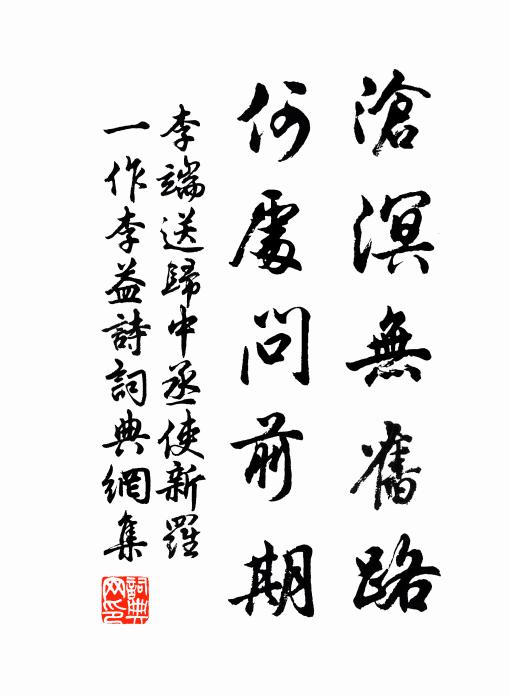 滄溟無舊路
何處問前期
李端送歸中丞使新羅
一作李益詩詞典網集
詞典網印